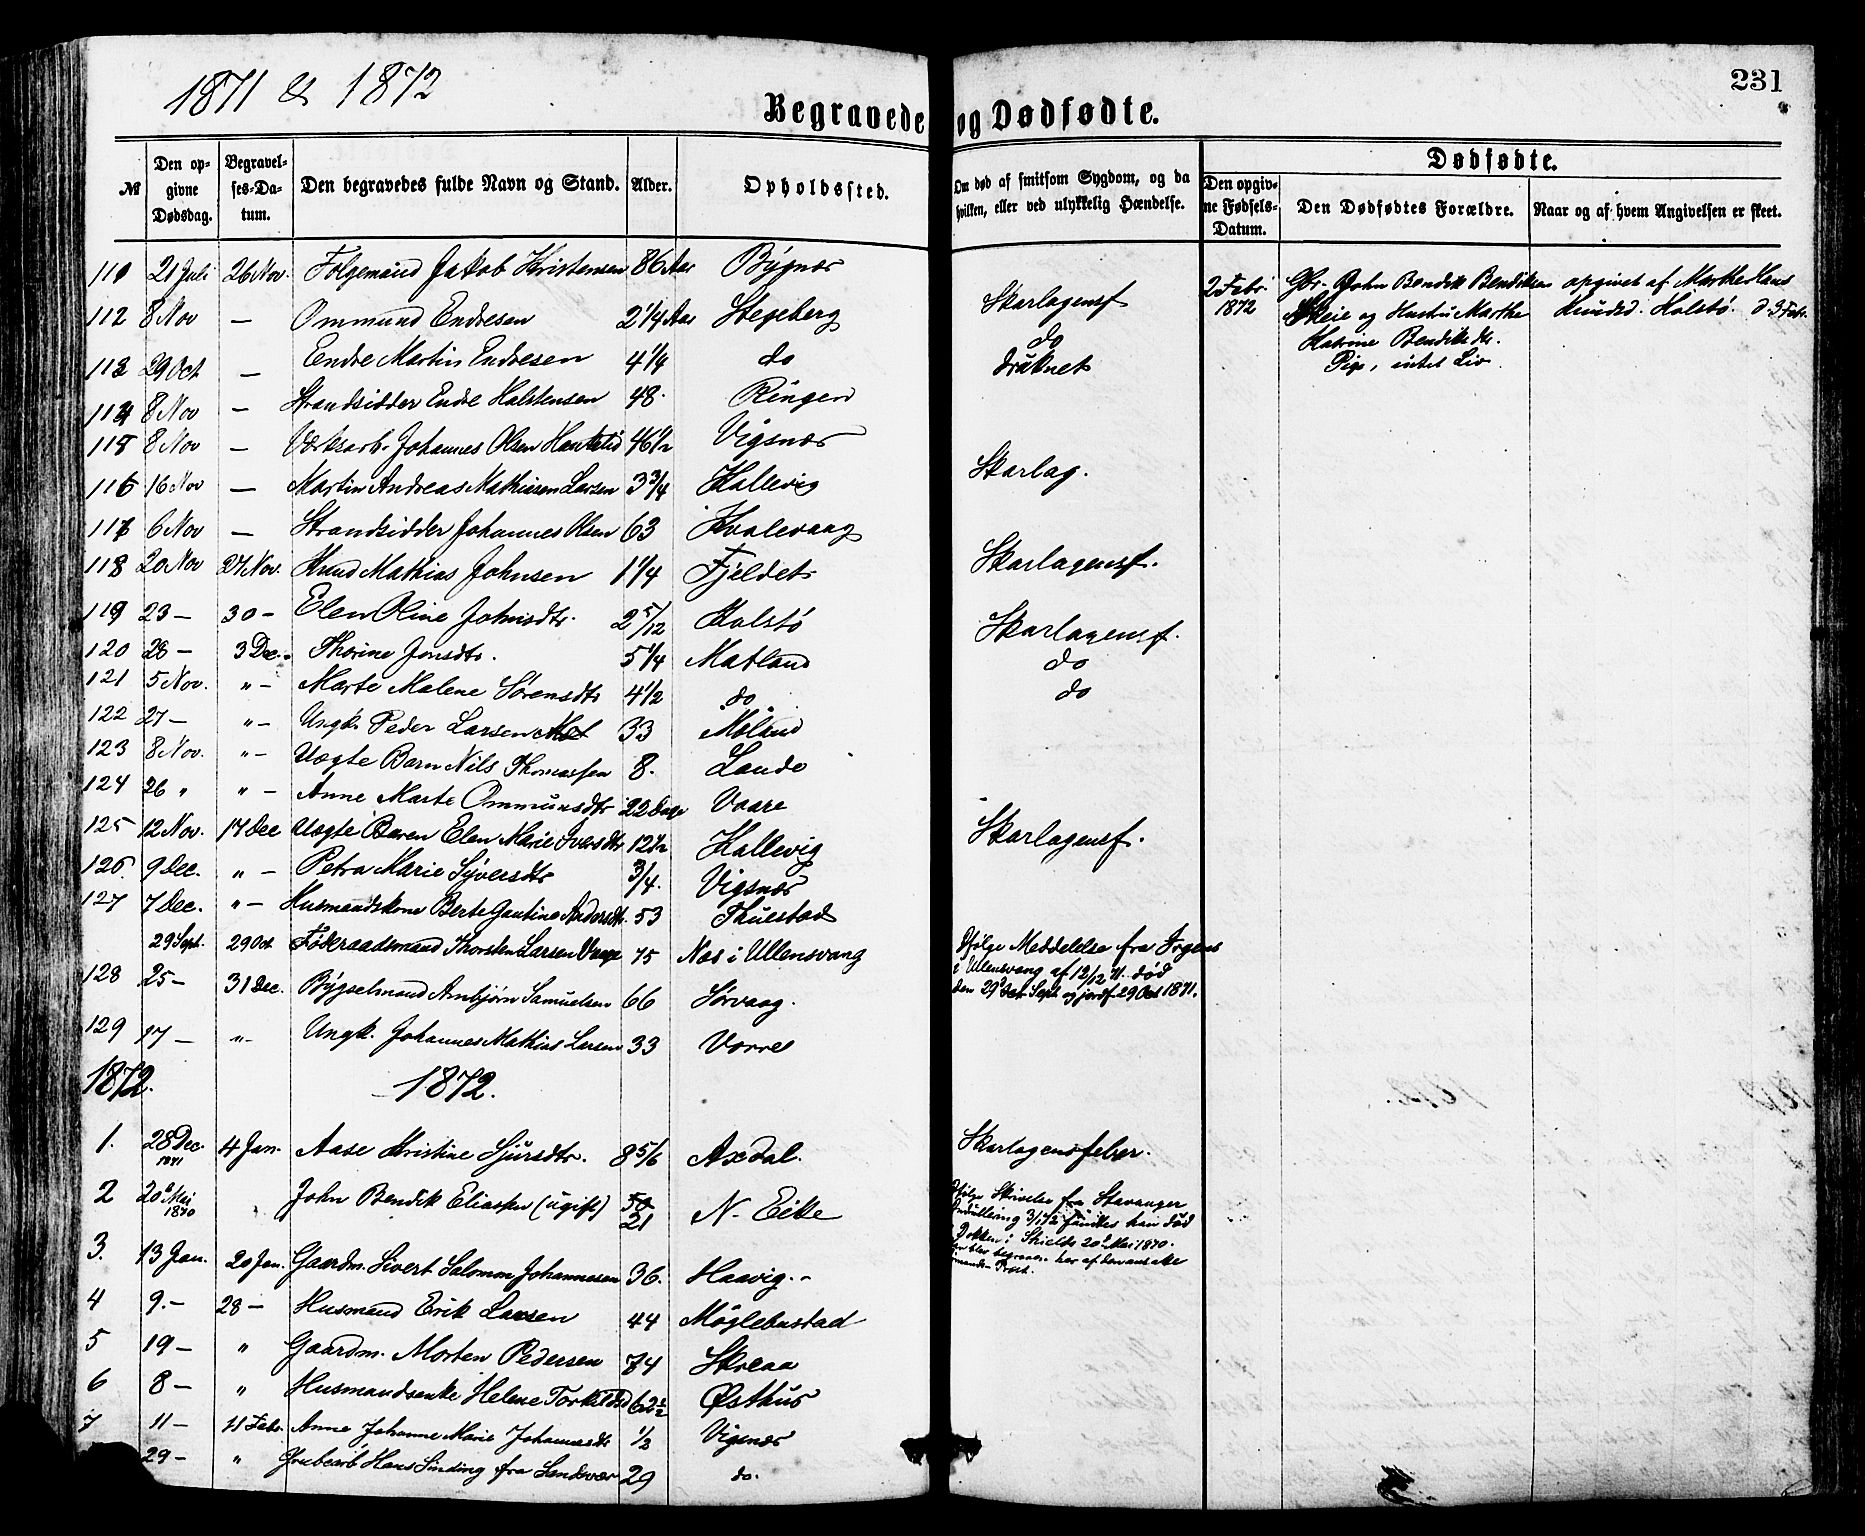 1871 & 1872
231
Begravede og Dødfødte.
№
Den opgivne Dødsdag.
Begravelses-Datum.
Den begravedes fulde Navn og Stand.
Alder.
Opholdssted.
Om død af smitsom Sygdom, og da hvilken, eller ved ulykkelig Hændelse.
Dødfødte.
Den opgivne Fødsels-Datum.
Den Dødfødtes Forældre.
Naar og af hvem Angivelsen er skeet.
111 21 Juli 26 Nov. Folgemand Jakob Kristensen 86 Aar Bygnes
112 8 Nov — Ommund Endresen 2 1/4 Aar Stegeberg Skarlagensf
113 29 Oct — Endre Martin Endresen 4 1/4 do do
114 8 Nov — Strandsidder Endre Halstensen 48. Ringen druknet
115 8 Nov — Værksarb. Johannes Olsen 46 1/2 Vigsnes
116 16 Nov — Martin Andreas Mathiasen Larsen 3 3/4 Hallevig Skarlag.
117 6 Nov — Strandsidder Johannes Olsen 63 Kvalevaag
118 20 Nov 27 Nov. Knud Mathias Johnsen 1 1/4 Fjeldet Skarlagensf.
119 23 — 30 — Elen Oline Johnsdtr. 2 5/12 Kolstø Skarlagensf.
120 28 — 3 Dec. Thorine Jonsdtr. 5 1/4 Matland do
121 5 Nov. " — Marte Malene Sørensdtr 4 1/2 do do
122 27 — " — Ungk. Peder Larsen 33 Møland
123 8 Nov. " — Uægte Barn Nils Thomassen 8. Lande
124 26 " " — Anne Marte Ommundsdtr 22 Dage Vaare
125 12 Nov. 17 Dec Uægte Baren Elen Marie Iversdtr Hallevig Skarlagensf.
126. 9 Dec. " — Petra Marie Syversdtr 3/4. Vigsnes
127 7 Dec. " — Husmandskone Berte Andersdtr. 53 Thuestad
29 Sept. 29 Oct. Føderaadsmand Thorsten Larsen 75 Næs i Ullensvang
Ifølge Meddelelse fra
i Ullensvang af 12/12 71. død
den 29de Sept. og jordf. 29 Oct 1871.
128 25 — 31 Dec. Bygselmand Ambjørn Samuelsen 66 Sørvaag.
129 17 — " — Ungk. Johannes Mathias Larsen 33 Vorre
1872. 1872.
1. 28 Dec. 1871 4 Jan. Aase Kristine Sjursdtr. 8 5/6 Axdal. Skarlagensfeber.
2 20de Mai 1870 John Bendik Eliassen (ugift) 21 N. Eike
Ifølge Skrivelse fra Stavanger
3/1 72 fundtes han død
i Dokken i Shields 20de Mai 1870.
3. 13 Jan. 20 Jan. Gaardm. Sivert Salomon Johannesen 36. Haavig. -
4 9. — 28 — Husmand Erik Larsen 44 Møglebustad
5 19 — " Gaardm. Morten Pedersen 74 Skreaa
6 8 — " Husmandsenke Helene Torkildsd 62 1/2 Østhus
7 11 — 11 Febr. Anne Johanne Marie Johannesdtr 1/2 Vigsnes
29 — " Grubearb Hans Sinding fra 29 do.
2 Febr. 1872
Gbr. John Bendik Bendiksen
Skeie og Hustru Marthe
Katrine Bendiksdtr.
Pige, intet Liv
opgivet af Marthe
Knudsd. Kolstø. d. 3 Febr.